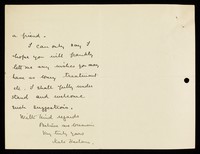 a friend.
I can only say I
hope you will frankly
let me any wishes you may
have as to any treatment
etc. I shall fully under
stand and welcome
such suggestions.
With kind regards
Believe me
Very truly yours